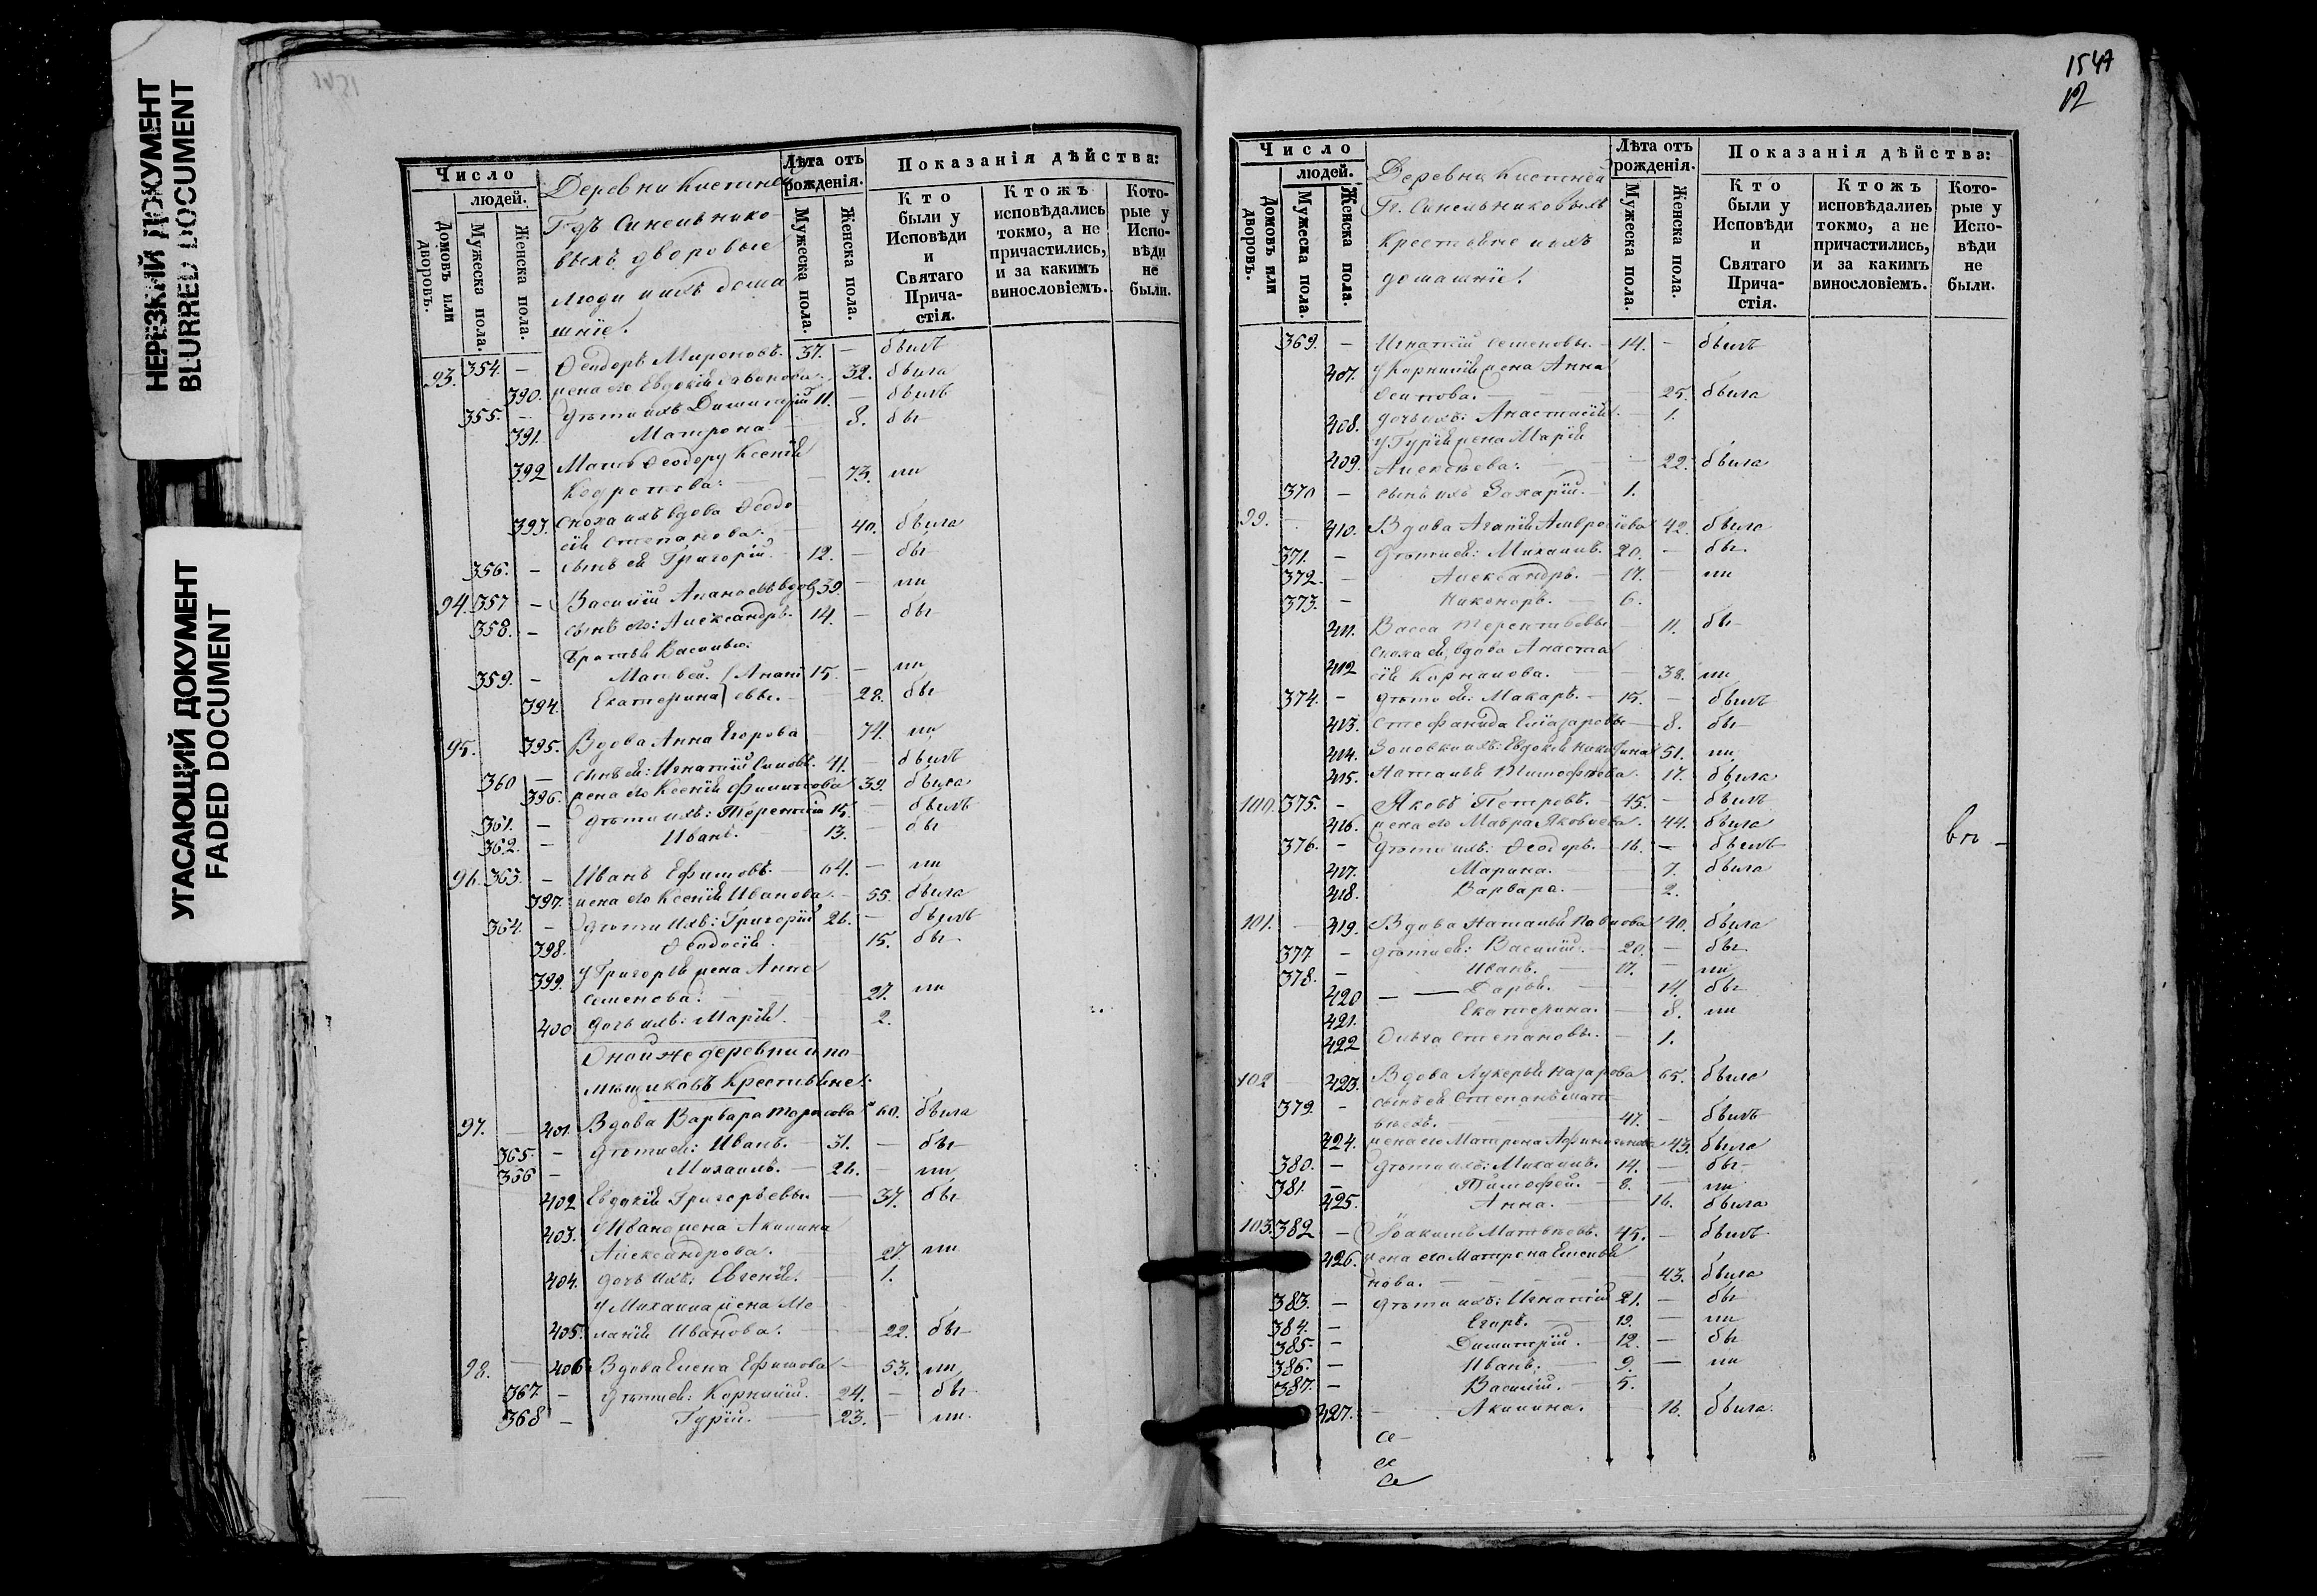 НЕРЕЗКИЙ ДОКУМЕНТ
BLURRED DOCUMENT
УГАСАЮЩИЙ ДОКУМЕНТ
FADED DOCUMENT
Число
людей.
Домовъ или дворовъ.
Мужеска пола.
Женска пола.
Деревни
Гдъ Синельнико-
выхъ дворовые
люди ихъ дома
шніе.
Лѣта отъ рожденія.
Мужеска пола.
Женска пола.
Показанія дѣйства:
Кто были у Исповѣди и Святаго Прича-стія.
Ктожъ исповѣдались токмо, а не причастились, и за какимъ винословіемъ.
Кото-рые у Испо-вѣди не были.
93. 354. — Ѳеодоръ Мироновъ. 37. — былъ
390. жена его Евдокія 32. была
355. — дѣти ихъ Димитрій 11. — былъ
391. Матрона 8. бы
392 Мать Ѳеодору Ксенія
73. ли
393. Сноха ихъ вдова Ѳеодо
сія Степанова. 40. была
356. — сынъ ея Григорій. 12. — бы
94. 357 — Василій вдов. 39. — ли
358. — сынъ его: Александръ. 14. — бы
Братья Василью:
359. — Матвей. 15. — ли
394. Екатерина 28. бы
95. 395. Вдова Анна Егорова 74. ли
360 — сынъ ея: Игнатій 41. — былъ
396. жена его Ксенія Филипова 39. была
361. — дѣти ихъ: Терентій 15. — былъ
362. — Иванъ. 13. — бы
96. 363. — Иванъ Ефимовъ. 64. — ли
397. жена его Ксенія Иванова. 55. была
364. — дѣти ихъ: Григорій 26. — былъ
398. Ѳеодосія. 15. бы
399. у Григорья жена Анна
Семенова. 27. ли
400 дочь ихъ: Марія. 2.
Оной же деревни и по-
мѣщиковъ Крестьяне:
97. — 401. Вдова Варвара Тарасова 60. была
365. — дѣти ея: Иванъ. — 31. — бы
366 — Михаилъ. — 26. — ли
402 Евдокія Григорьевы — 37. бы
403. У Ивана жена Акилина
Александрова. 27. ли
404. дочь ихъ: Евгенія. — 1.
У Михаила жена Ме
405. ланія Иванова. 22. бы
98. — 406 Вдова Елена Ефимова — 53. ли
367. — дѣти ея: Корнилій. 24. — бы
368 — Гурій. — 23. — ли.
1547
12
Число
людей.
Домовъ или дворовъ.
Мужеска пола.
Женска пола.
Деревни
Гг. Синельниковыхъ
Крестьяне ихъ
домашніе.
Лѣта отъ рожденія.
Мужеска пола.
Женска пола.
Показанія дѣйства:
Кто были у Исповѣди и Святаго Прича-стія.
Ктожъ исповѣдались токмо, а не причастились, и за какимъ винословіемъ.
Кото-рые у Испо-вѣди не были.
369. — Игнатій Семеновы. — 14. — былъ
407. у Корнилія жена Анна
Осипова. — 25. была
408. дочь ихъ: Анастасія. — 1.
у Гурія жена Марія
409. Алексѣева: — 22. была
370 — сынъ ихъ Захарій. — 1.
99. — 410. Вдова Агапія Амвросіева 42. была
371. — дѣти ея: Михаилъ. 20. — бы
372. — Александръ. — 17. — ли
373. — Никоноръ. — 6.
411. Васса Терентьевы 11. бы
Сноха ея, вдова Анаста
412 сія Корнилова. — 38. ли
374. — дѣти ея: Макаръ. — 15. — былъ
413. Стефанида Елиазаровы — 8. бы
414. Золовки ихъ: Евдокія 51. ли
415. Наталья Тимофѣева. 17. была
100. 375. — Яковъ Петровъ. — 45. — былъ
416. жена его Мавра Яковлева. 44. была
376. — дѣти ихъ: Ѳеодоръ. — 16. — былъ
417. Марина. — 7. была
418. Варвара. — 2.
101. — 419. Вдова Наталья Павлова 40. была
377 — дѣти ея: Василій. — 20. — бы
378. — Иванъ. — 17. — ли
420 — Дарья. — 14. бы
421. Екатерина. — 8. ли
422 Ольга Степановы. — 1.
102 423. Вдова Лукерья Назарова 65. была
379. — сынъ ея Степанъ Мат
вѣевъ. — 47. — былъ
424. жена его Матрона 43. была
380. — дѣти ихъ: Михаилъ. 14. — бы
381. — Тимофей. — 8. — ли
425. Анна. — 16. была
103. 382 — Іоакимъ Матвѣевъ. 45. — былъ
426. жена его Матрона Емелья
нова. — 43. была
383. — дѣти ихъ: Игнатій 21. — бы
384. — Егоръ. — 19. — ли
385. — Димитрій. — 12. — бы
386. — Иванъ. — 9. — ли
387. — Василій. — 5.
427. Акилина. — 16. была.